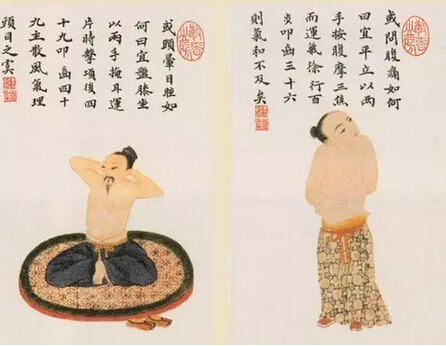 或問腹痛如何
曰宜平立以兩
手按腹摩三焦
而運氣徐行百
炎叩齒三十六
則氣和不及矣
或頭暈目眩如
何曰宜盤膝坐
以兩手掩耳運
片時擊項後四
十九叩齒四十
九主散風氣理
頭目之